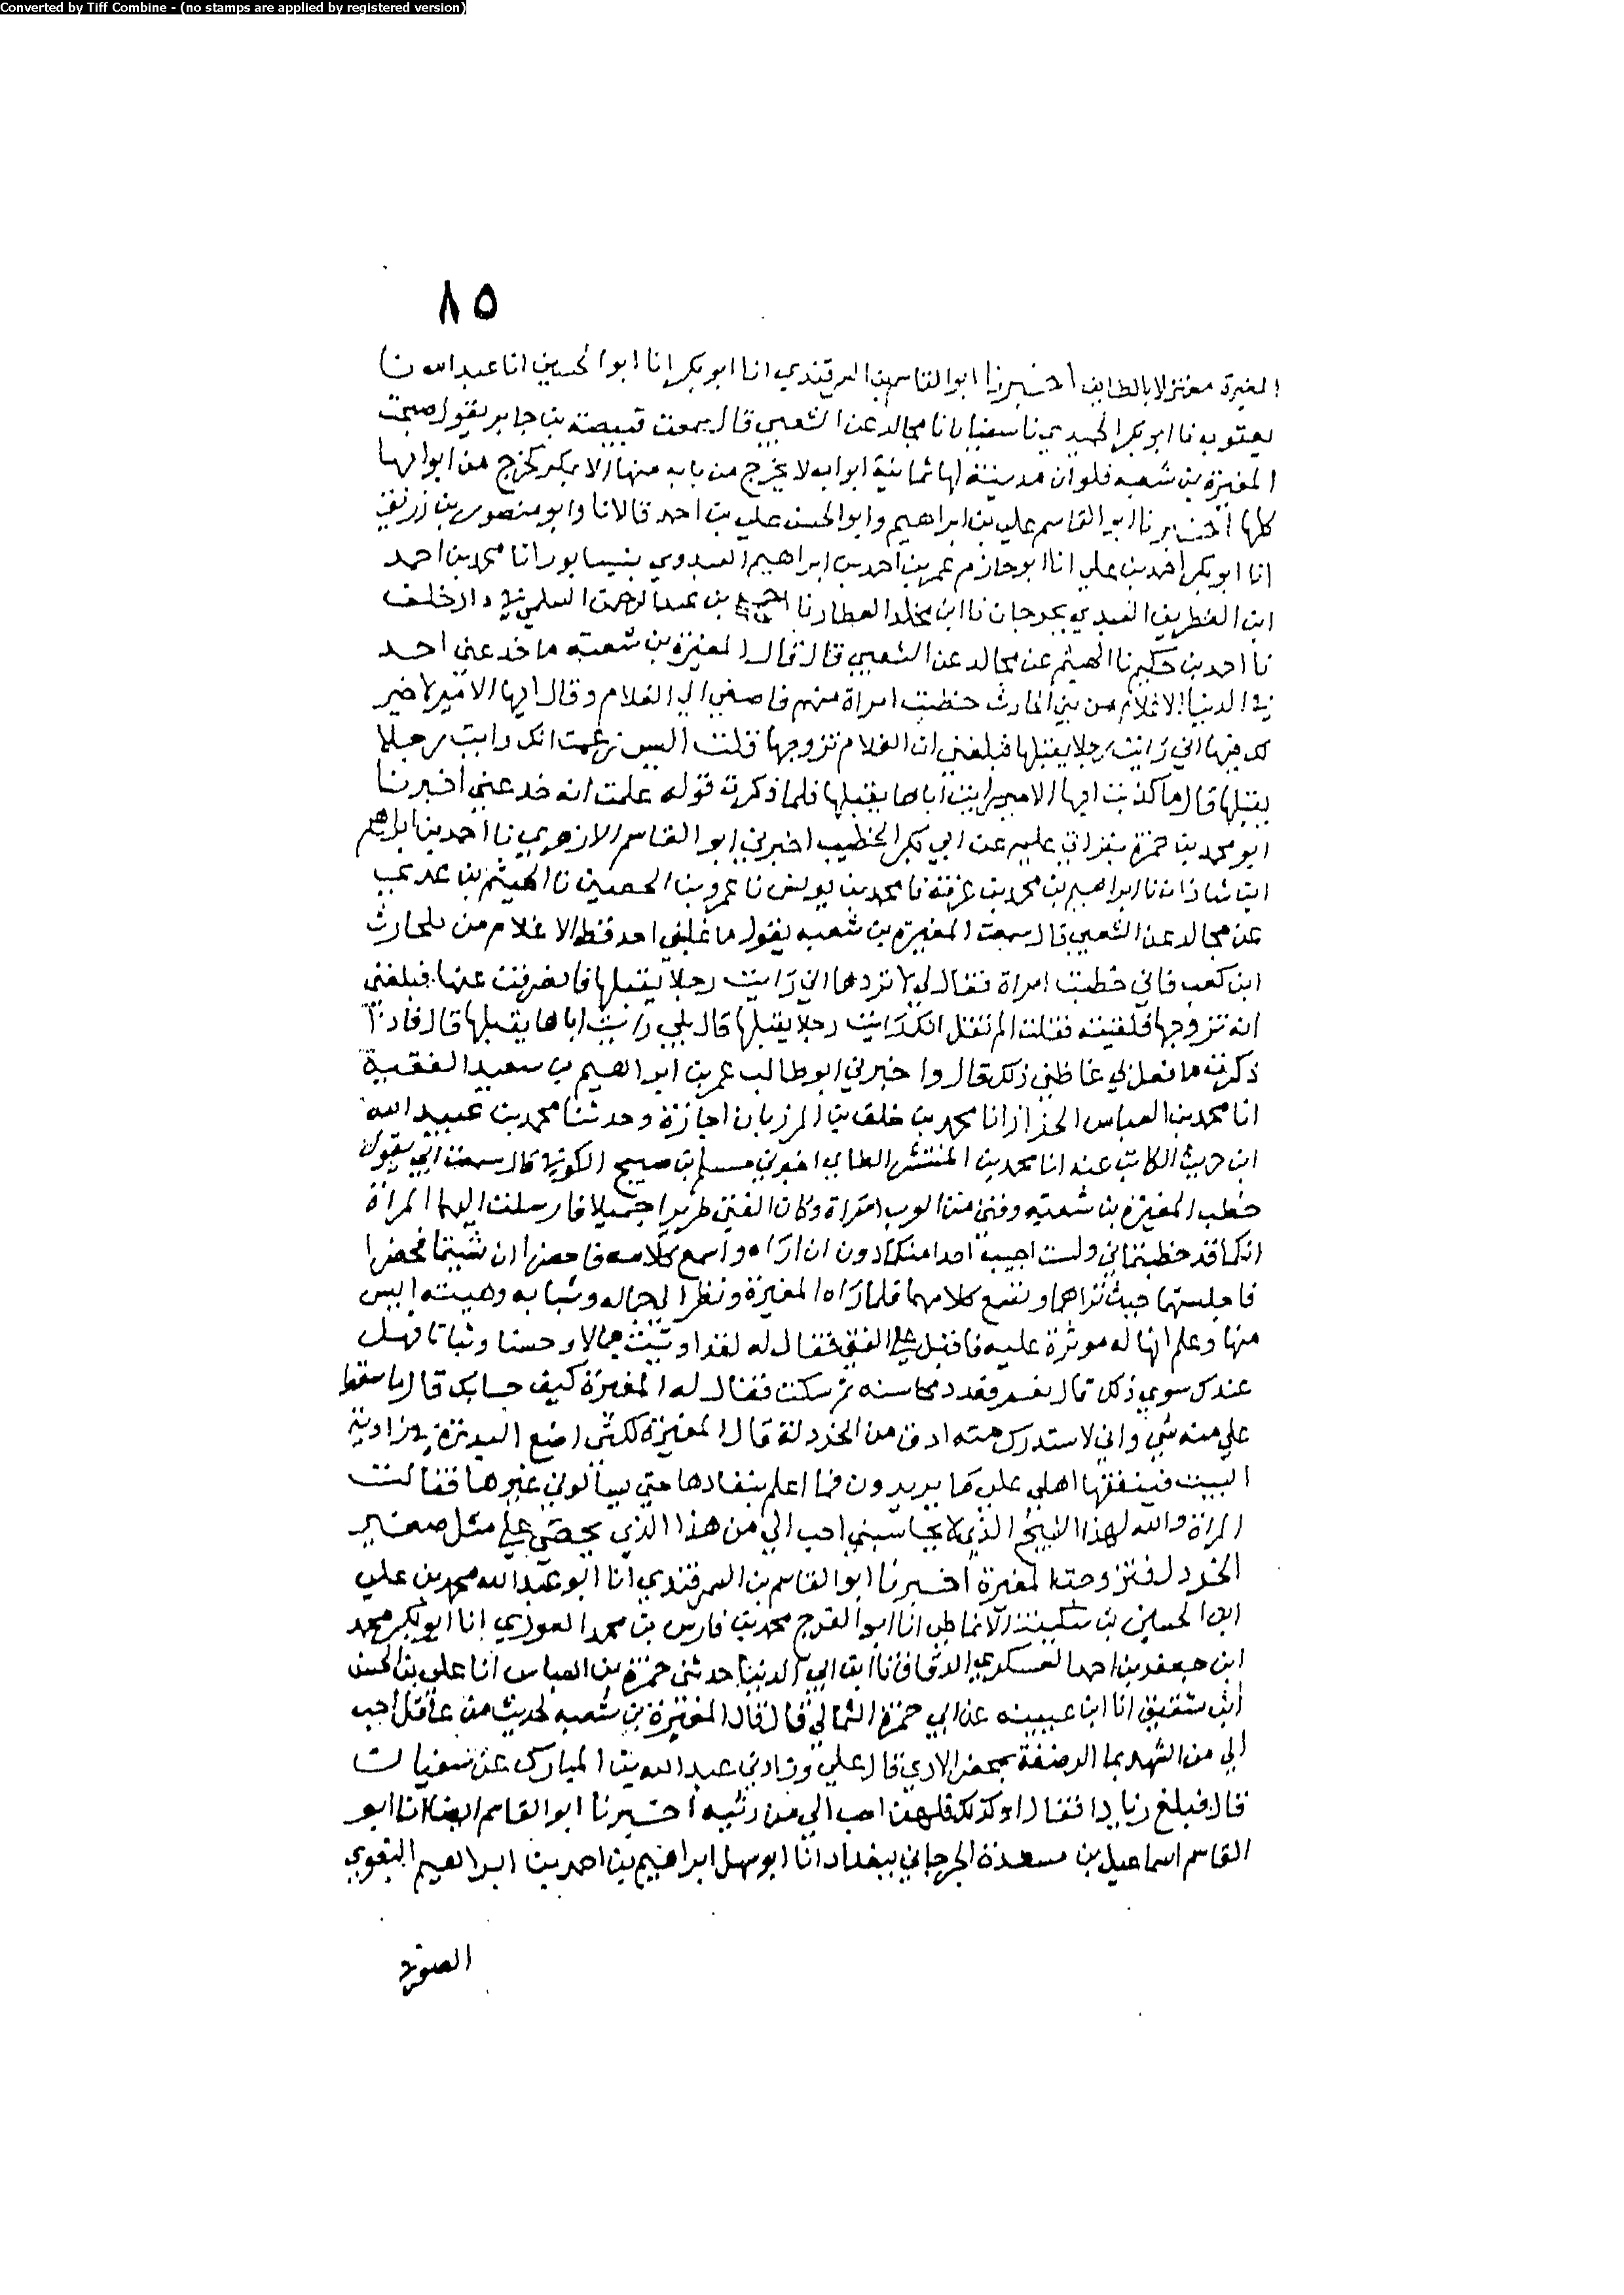 Converted by Tiff Combine - (no stamps are applied by registered version)
٨٥
المغيرة معتزلا بالطايف اخبرنا ابو القاسم بن السمرقندي انا ابو بكر انا ابو الحسين انا عبد الله نا
يعقوب نا ابو بكر الحميدي نا سفيان نا مجالد عن الشعبي قال سمعت قبيصة بن جابر يقول صحبت
المغيرة بن شعبه فلو ان مدينة لها ثمانية ابواب لا يخرج من باب منها الا بمكر لخرج من ابوابها
كلها اخبرنا ابو القاسم علي بن ابراهيم وابو الحسن علي بن احمد قالا نا وابو منصور بن زريق
انا ابو بكر احمد بن علي انا ابو حازم عمر بن احمد بن ابراهيم العبدوي بنيسابور انا محمد بن احمد
ابن الغطريف العبدي بجرجان نا ابن مخلد العطار نا بن عبد الرحمن السلمي في دار خلف
نا احمد بن حكيم نا الهيثم عن مجالد عن الشعبي قال قال المغيرة بن شعبة ما خدعني احد
في الدنيا الا غلام من بني الحارث خطبت امراة منهم فاصغى الي الغلام وقال ايها الامير لا خير
لك فيها اني رايت رجلا يقبلها فبلغني ان الغلام تزوجها فقلت اليس زعمت انك رايت رجلا
يقبلها قال ما كذبت ايها الامير رايت اباها يقبلها فلما ذكرت قوله علمت انه خدعني اخبرنا
ابو محمد بن حمزة بقراتي عليه عن ابي بكر الخطيب اخبرني ابو القاسم الازهري نا احمد بن ابراهيم
ابن شاذان نا ابراهيم بن محمد بن عرفة نا محمد بن يونس نا عمرو بن الحصين نا الهيثم بن عدي
عن مجالد عن الشعبي قال سمعت المغيرة بن شعبه يقول ما غلبني احد قط الا غلام من بلحارث
ابن كعب فاني خطبت امراة فقال لي لا تردها اني رايت رجلا يقبلها فانصرفت عنها فبلغني
انه تزوجها فلقيته فقلت الم تقل انك رايت رجلا يقبلها قال بلى رايت اباها يقبلها قال فاذا
ذكرت ما فعل بي غاظني ذلك قال واخبرني ابو طالب عمر بن ابراهيم بن سعيد الفقيه
انا محمد بن العباس الخزاز انا محمد بن خلف بن المرزبان اجازة وحدثنا محمد بن عبيد الله
ابن حريث الكاتب عنه انا محمد بن المنتشر الطاي اخبرني مسلم بن صبيح الكوفي قال سمعت ابي يقول
خطب المغيرة بن شعبه وفتى من العرب امراة وكان الفتى طريرا جميلا فارسلت اليهما المراة
انكما قد خطبتماني ولست اجيب احدا منكما دون ان اراه واسمع كلامه فاحضرا ان شيتما فحضرا
فاجلستهما حيث تراهما وتسمع كلامهما فلما راه المغيرة ونظر الى جماله وشبابه وهيبته ايس
منها وعلم انها له موثرة عليه فاقبل على الفتى فقال له لقد اوتيت جمالا وحسنا وثباتا فهل
عندك سوى ذلك قال نعم فعدد محاسنه ثم سكت فقال له المغيرة كيف حسابك قال ما سقط
علي منه شي واني لاستدرك منه ادق من الخردلة قال المغيرة لكني اضع البدرة في زاوية
البيت فينفقها اهلي على ما يريدون فما اعلم بنفادها حتى يسالوني غيرها فقالت
المراة والله لهذا الشيخ الذي لا يحاسبني احب الي من هذا الذي يحصي علي مثل صغير
الخردل فتزوجت المغيرة اخبرنا ابو القاسم بن السمرقندي انا ابو عبد الله محمد بن علي
ابن الحسين بن سكينة الانماطي انا ابو الفرج محمد بن فارس بن محمد الغوري انا ابو بكر محمد
ابن جعفر بن احمد العسكري الدقاق نا ابن ابي الدنيا حدثني حمزة بن العباس انا علي بن الحسن
ابن شقيق انا ابن عيينه عن ابي حمزة الثمالي قال قال المغيرة بن شعبه لحديث من عاقل احب
الي من الشهد بما الرصفة بمحض الارى قال علي وزادني عبد الله بن المبارك عن سفيان
قال فبلغ زيادا فقال او كذلك فلهو احب الي من رثيه اخبرنا ابو القاسم ايضا انا ابو
القاسم اسماعيل بن مسعدة الجرجاني ببغداد انا ابو سهل ابراهيم بن احمد بن ابراهيم البغوي
الصوفي